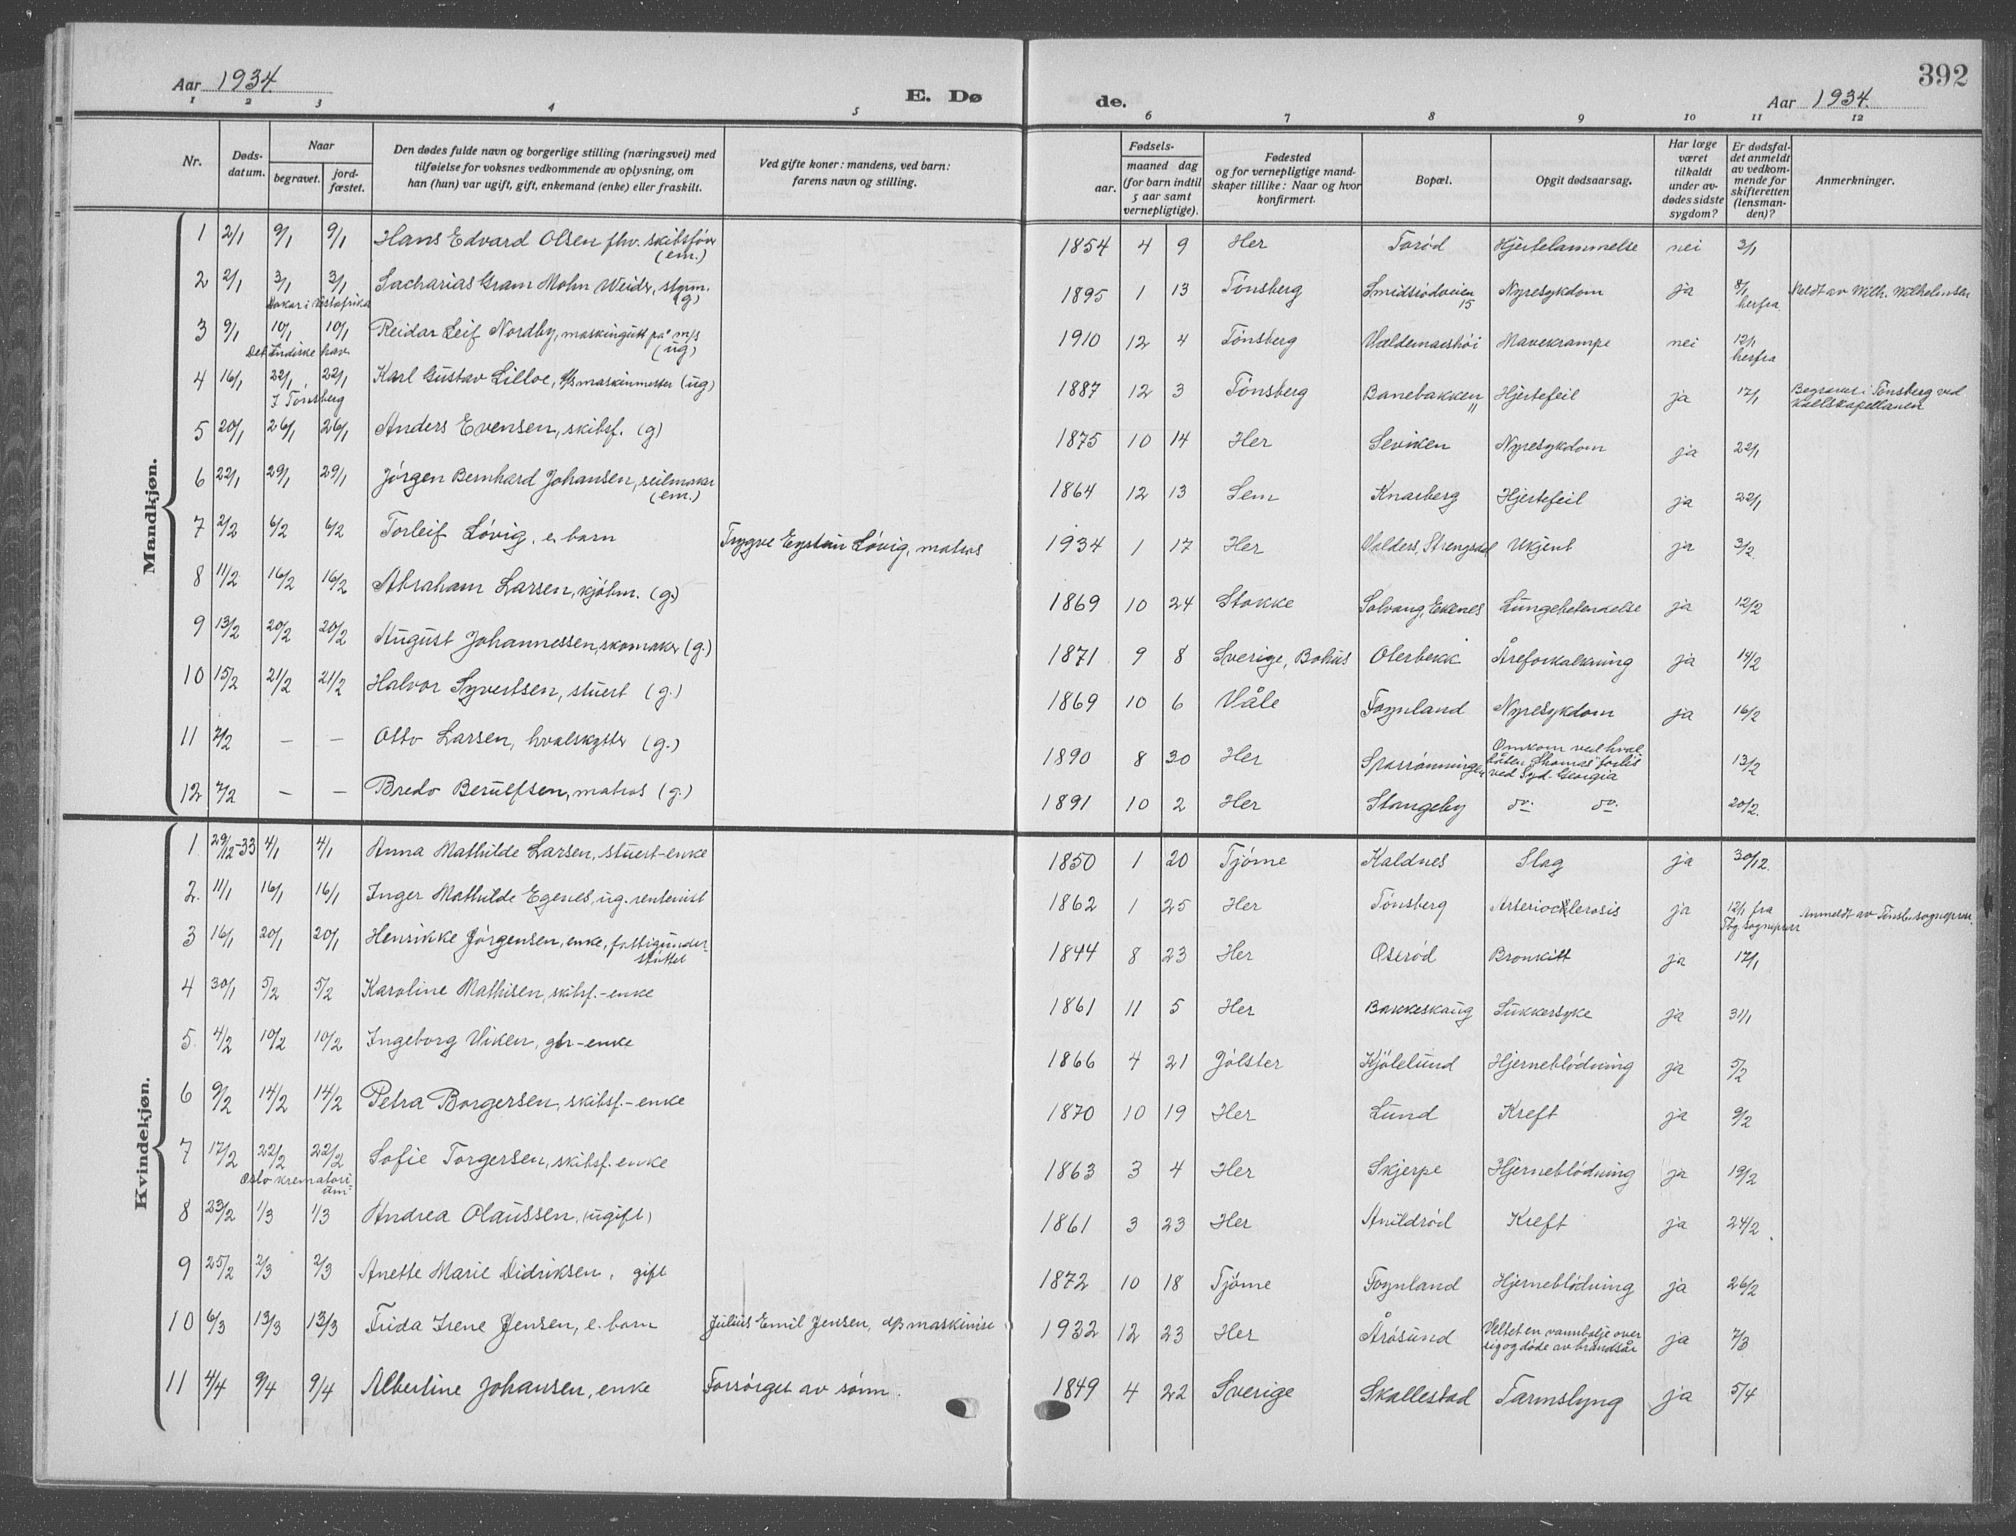 392
Aar 1934
E. Dø
de.
Aar 1934.
1 2 3 4 5 6 7 8 9 10 11 12
Nr.
Døds-
datum.
Naar
begravet.
jord-
fæstet.
Den dødes fulde navn og borgerlige stilling (næringsvei) med
tilføielse for voksnes vedkommende av oplysning, om
han (hun) var ugift, gift, enkemand (enke) eller fraskilt.
Ved gifte koner: mandens, ved barn:
farens navn og stilling.
Fødsels-
aar.
maaned dag
(for barn indtil
5 aar samt
vernepligtige).
Fødested
og for vernepligtige mand-
skaper tillike: Naar og hvor
konfirmert.
Bopæl.
Opgit dødsaarsag.
Har læge
været
tilkaldt
under av-
dødes sidste
sygdom?
Er dødsfal-
det anmeldt
av vedkom-
mende for
skifteretten
(lensman-
den)?
Anmerkninger.
Mandkjøn.
1 2/1 9/1 9/1 Hans Edvard Olsen fhv. skibsfører (em.) 1854 4 9 Her Torød Hjertelammelse nei 3/1
2 2/1 3/1 3/1 Sacharias Gram Mohn Weider, styrm. (g) 1895 1 13 Tønsberg Smidsrødveien 15 Nyresykdom ja 8/1 herfra Meldt av Wilh. Wilhelmsen
Dakar i Vestafrika
3 9/1 10/1 10/1 Reidar Leif Nordby, maskingutt på m/s (ug) 1910 12 4 Tønsberg Valdemarshøi Mavekrampe nei 12/1 herfra
Det Indiske hav
4 16/1 22/1 22/1 Karl Gustav Lilloe, d/s maskinmester (ug) 1887 12 3 Tønsberg Banebakken 11 Hjertefeil ja 17/1 Begravet i Tønsberg ved
I Tønsberg
5 20/1 26/1 26/1 Anders Evensen, skibsf. (g) 1875 10 14 Her Seviken Nyresykdom ja 22/1
6 22/1 29/1 29/1 Jørgen Bernhard Johansen, seilmaker (em.) 1864 12 13 Sem Knarberg Hjertefeil ja 22/1
7 2/2 6/2 6/2 Torleif Løvig, e. barn Trygve Eystein Løvig, matros 1934 1 17 Her Valders, Strengsdal Ukjent ja 3/2
8 11/2 16/2 16/2 Abraham Larsen, kjøbm. (g.) 1869 10 24 Stokke Solvang, Ekenes Lungebetendelse ja 12/2
9 13/2 20/2 20/2 August Johannessen, skomaker (g.) 1871 9 8 Sverige, Bohus Oterbekk Åreforkalkning ja 14/2
10 15/2 21/2 21/2 Halvor Syvertsen, stuert (g.) 1869 10 6 Våle Føynland Nyresykdom ja 16/2
11 7/2 — — Otto Larsen, hvalskytter (g.) 1890 8 30 Her Sparrønningen Omkom ved hval-
båten "Thomas" forlis
ved Syd Georgia 13/2
12 7/2 — — Bredo Berulfsen, matros (g.) 1891 10 2 Her Stangeby do. do. 20/2.
Kvindekjøn.
1. 29/12-33 4/1 4/1 Anna Mathilde Larsen, stuert-enke 1850 1 20 Tjøme Kaldnes Slag ja 30/12.
2. 11/1 16/1 16/1 Inger Mathilde Egenes, ug. rentenist 1862 1 25 Her Tønsberg Arteriosclerosis ja 12/1 fra Tbg. sogneprest Anmeldt av Tønsb. sogneprest.
3 16/1 20/1 20/1 Henrikke Jørgensen, enke, fattigunder-
støttet 1844 8 23 Her Oserød Bronkitt ja 17/1
4 30/1 5/2 5/2 Karoline Mathisen, skibsf.-enke 1861 11 5 Her Bakkeskaug Sukkersyke ja 31/1
5. 4/2 10/2 10/2 Ingeborg Viken, gbr-enke 1866 4 21 Jølster Kjølelund Hjerneblødning ja 5/2
6 9/2 14/2 14/2 Petra Borgersen, skibsf.-enke 1870 10 19 Her Lund Kreft ja 9/2
7 17/2 22/2 22/2 Sofie Torgersen, skibsf. enke 1863 3 4 Her Skjerpe Hjerneblødning ja 19/2
Oslo krematori-
um
8 23/2 1/3 1/3 Andrea Olaussen, (ugift) 1861 3 23 Her Arildrød Kreft ja 24/2.
9 25/2 2/3 2/3 Anette Marie Didriksen, gift 1872 10 18 Tjøme Føynland Hjerneblødning ja 26/2
10 6/3 13/3 13/3 Frida Irene Jensen, e. barn Julius Emil Jensen, d/s maskinist 1932 12 23 Her Årøsund Veltet en vannbolje over
sig og døde av brandsår ja 7/3
11 4/4 9/4 9/4 Albertine Johansen, enke Forsørget av sønn. 1849 4 22 Sverige Skallestad Tarmslyng ja 5/4